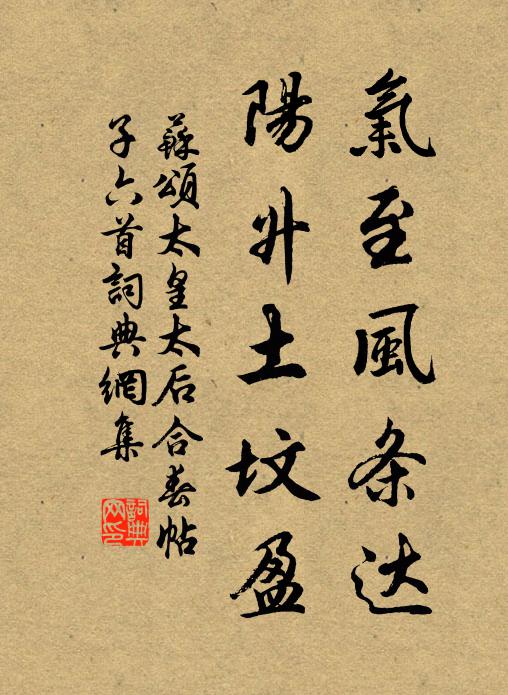 氣至風条达
陽升土坟盈
蘇頌太皇太后合春帖
子六首詞典網集
詞典
网印